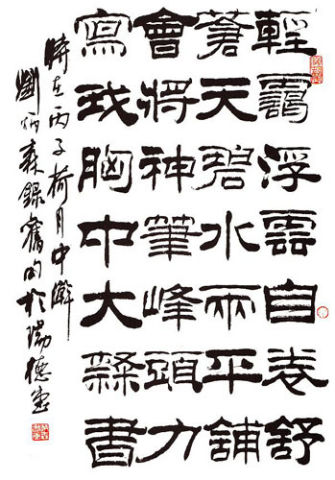 輕靄浮雲自卷舒
蒼天碧水兩平舖
會將神筆峰頭力
寫我胸中大隸書
時在丙子荷月中澣
劉炳森錄舊句於瑞德